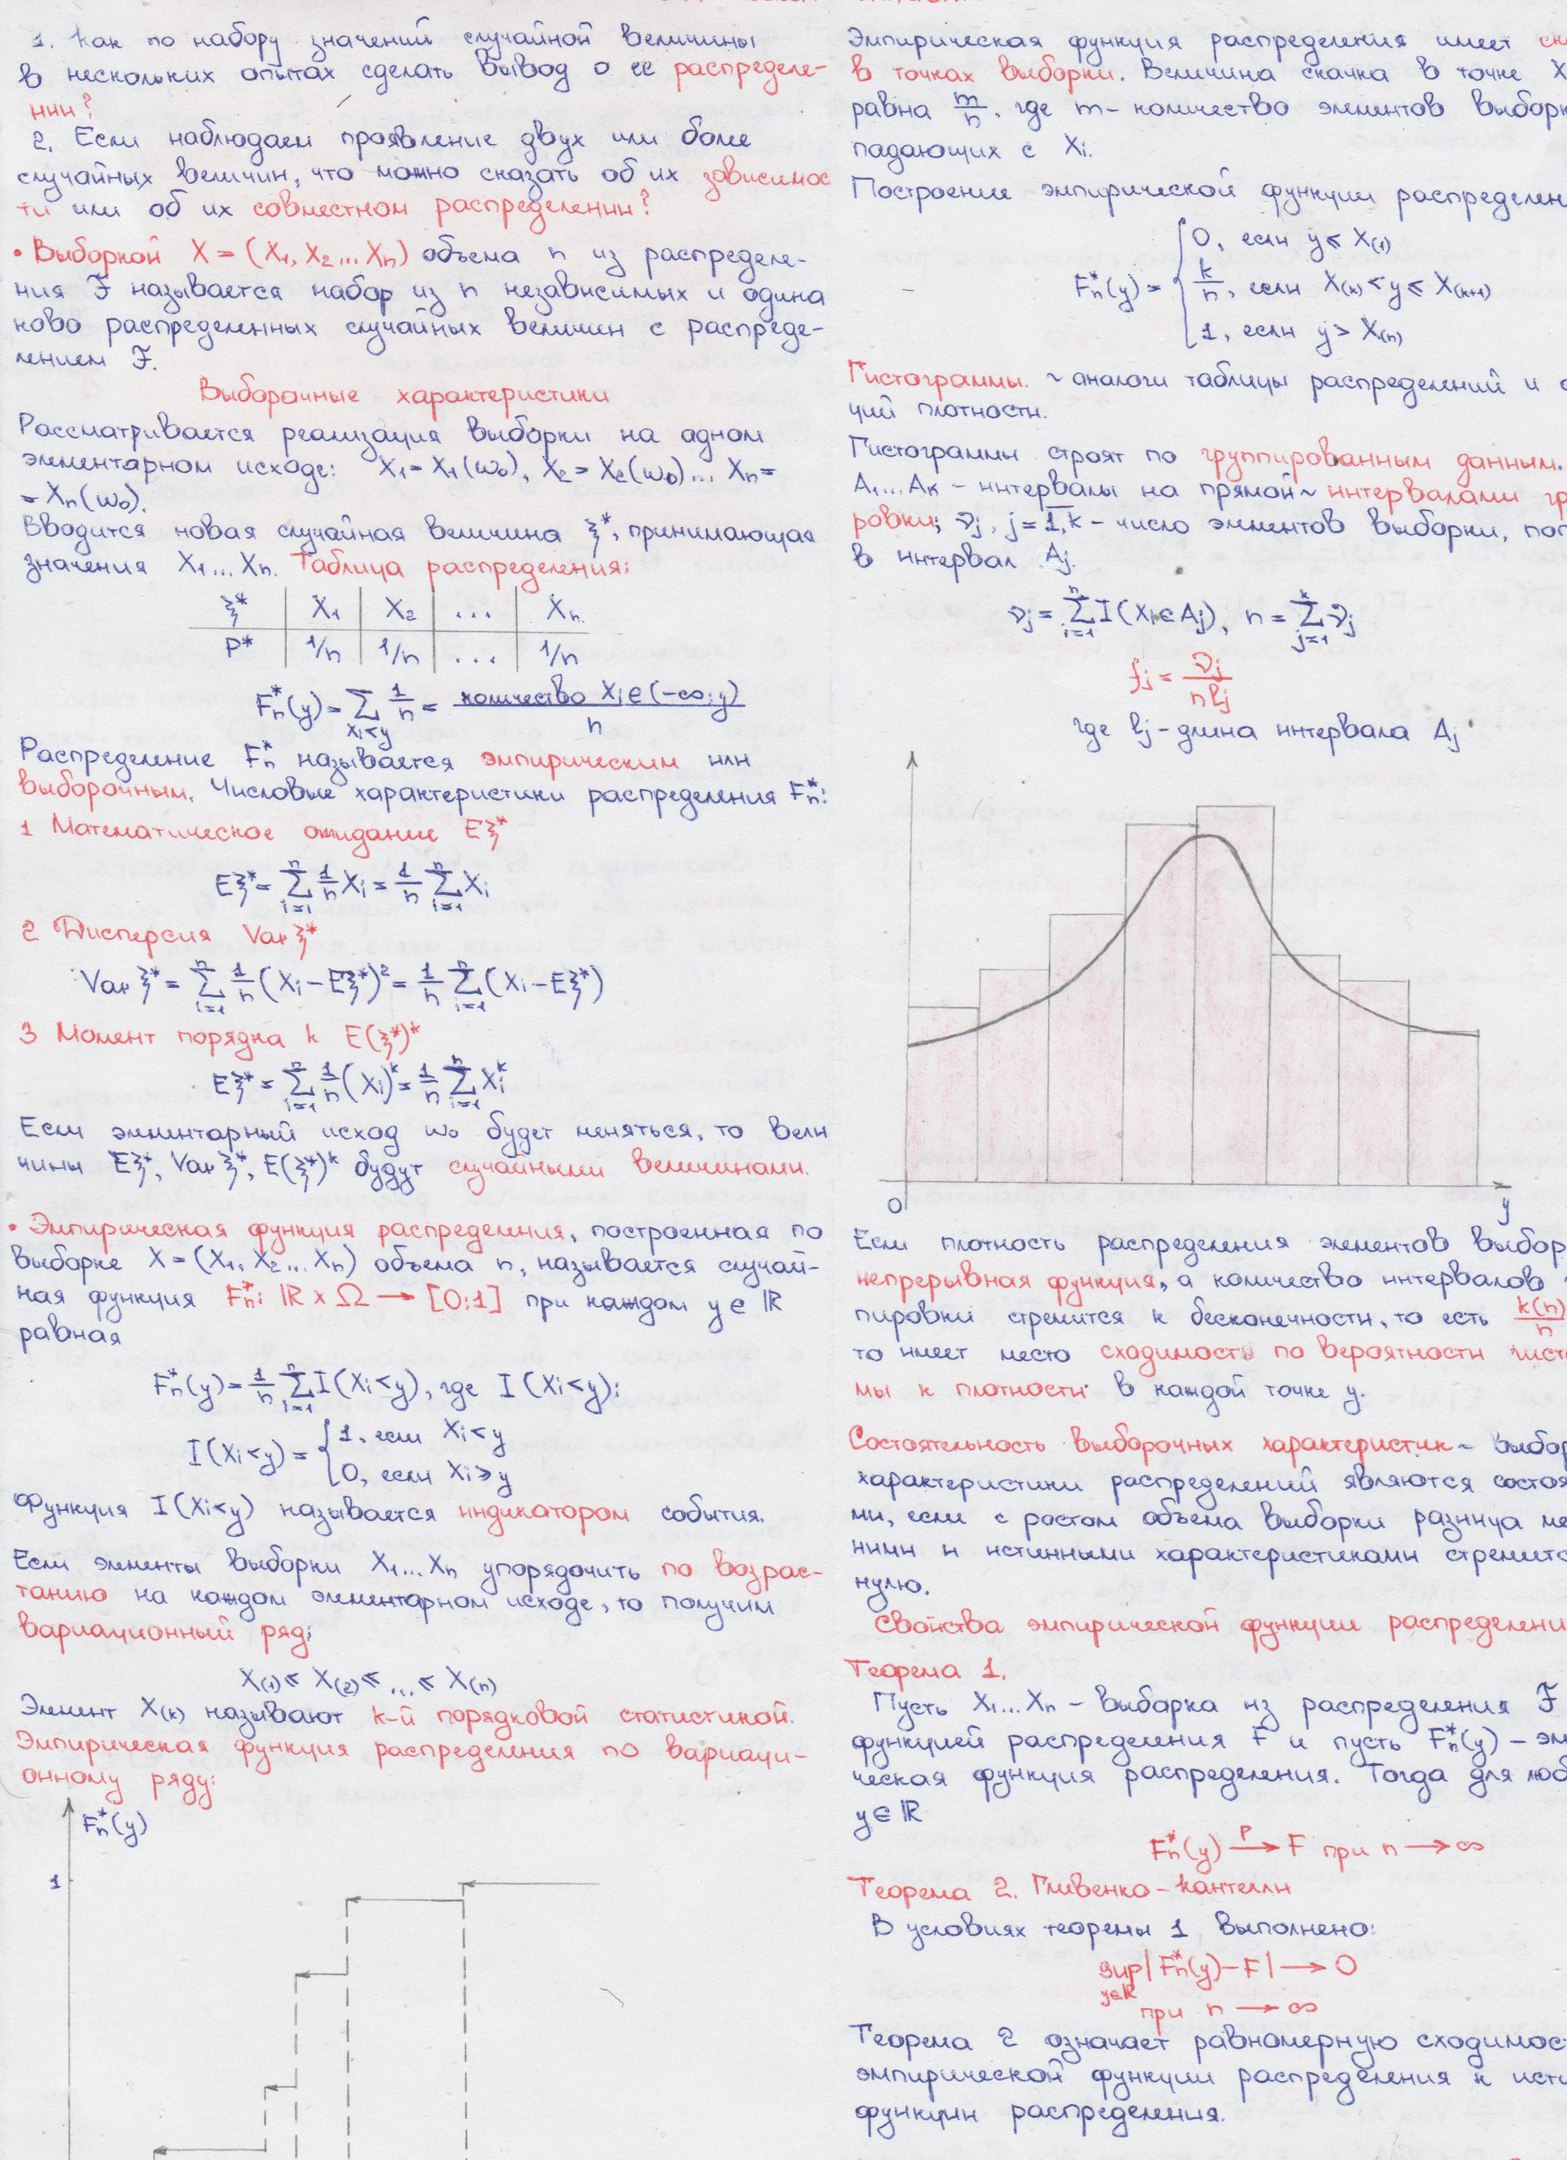 1. Как по набору значений случайной величины
в нескольких опытах сделать вывод о ее распределе-
нии?
2. Если наблюдаем проявление двух или боле
случайных величин, что можно сказать об их зависимос
ти или об их совместном распределении?
• Выборкой X = (X₁, X₂ ... Xn) объема n из распределе-
ния F называется набор из n независимых и одина
ково распределенных случайных величин с распреде-
лением F.
Выборочные характеристики
Рассматривается реализация выборки на одном
элементарном исходе: X₁ = X₁(ω₀), X₂ = X₂(ω₀)... Xn =
= Xn(ω₀).
Вводится новая случайная величина ξ*, принимающая
значения X₁...Xn. Таблица распределения:
ξ* X₁ X₂ ... Xn
P* 1/n 1/n ... 1/n
Fn*(y) = Σ_{Xi<y} 1/n = количество Xi ∈ (-∞; y) / n
Распределение Fn* называется эмпирическим или
выборочным. Числовые характеристики распределения Fn*:
1 Математическое ожидание Eξ*
Eξ* = Σ_{i=1}^{n} 1/n Xi = 1/n Σ_{i=1}^{n} Xi
2 Дисперсия Var ξ*
Var ξ* = Σ_{i=1}^{n} 1/n (Xi - Eξ*)² = 1/n Σ_{i=1}^{n} (Xi - Eξ*)
3 Момент порядка k E(ξ*)^k
Eξ* = Σ_{i=1}^{n} 1/n (Xi)^k = 1/n Σ_{i=1}^{n} Xi^k
Если элементарный исход ω₀ будет меняться, то вели
чины Eξ*, Var ξ*, E(ξ*)^k будут случайными величинами.
• Эмпирическая функция распределения, построенная по
выборке X = (X₁, X₂... Xn) объема n, называется случай-
ная функция Fn*: ℝ x Ω → [0;1] при каждом y ∈ ℝ
равная
Fn*(y) = 1/n Σ_{i=1}^{n} I(Xi < y), где I(Xi < y):
I(Xi < y) = { 1, если Xi < y
0, если Xi ⩾ y
Функция I(Xi < y) называется индикатором события.
Если элементы выборки X₁...Xn упорядочить по возрас-
танию на каждом элементарном исходе, то получим
вариационный ряд:
X(1) ⩽ X(2) ⩽ ... ⩽ X(n)
Элемент X(k) называют k-й порядковой статистикой.
Эмпирическая функция распределения по вариаци-
онному ряду:
Fn*(y)
1
Эмпирическая функция распределения имеет
в точках выборки. Величина скачка в точке X
равна m/n, где m - количество элементов выборк
падающих с Xi.
Построение эмпирической функции распределен
Fn*(y) = { 0, если y ⩽ X(1)
k/n, если X(k) < y ⩽ X(k+1)
1, если y > X(n)
Гистограммы. ~ аналоги таблицы распределений и
ций плотности.
Гистограммы строят по группированным данным.
A₁...Ak - интервалы на прямой ~ интервалами гр
ровки; νj, j = 1,k - число элементов выборки, поп
в интервал Aj.
νj = Σ_{i=1}^{n} I(Xi ∈ Aj), n = Σ_{j=1}^{k} νj
fj = νj / nlj
где lj - длина интервала Aj
0 y
Если плотность распределения элементов выбор
непрерывная функция, а количество интервалов
пировки стремится к бесконечности, то есть k(n)/n
то имеет место сходимость по вероятности гист
мы к плотности в каждой точке y.
Состоятельность выборочных характеристик ~ выбор
характеристики распределений являются состоя
ми, если с ростом объема выборки разница ме
ними и истинными характеристиками стремитс
нулю.
Свойства эмпирической функции распределени
Теорема 1.
Пусть X₁...Xn - выборка из распределения F
функцией распределения F и пусть Fn*(y) - эм
ческая функция распределения. Тогда для люб
y ∈ ℝ
Fn*(y) →^P F при n → ∞
Теорема 2. Гливенко-Кантелли
В условиях теоремы 1 выполнено:
sup_{y∈ℝ} |Fn*(y) - F| → 0
при n → ∞
Теорема 2 означает равномерную сходимос
эмпирической функции распределения к ист
функции распределения.